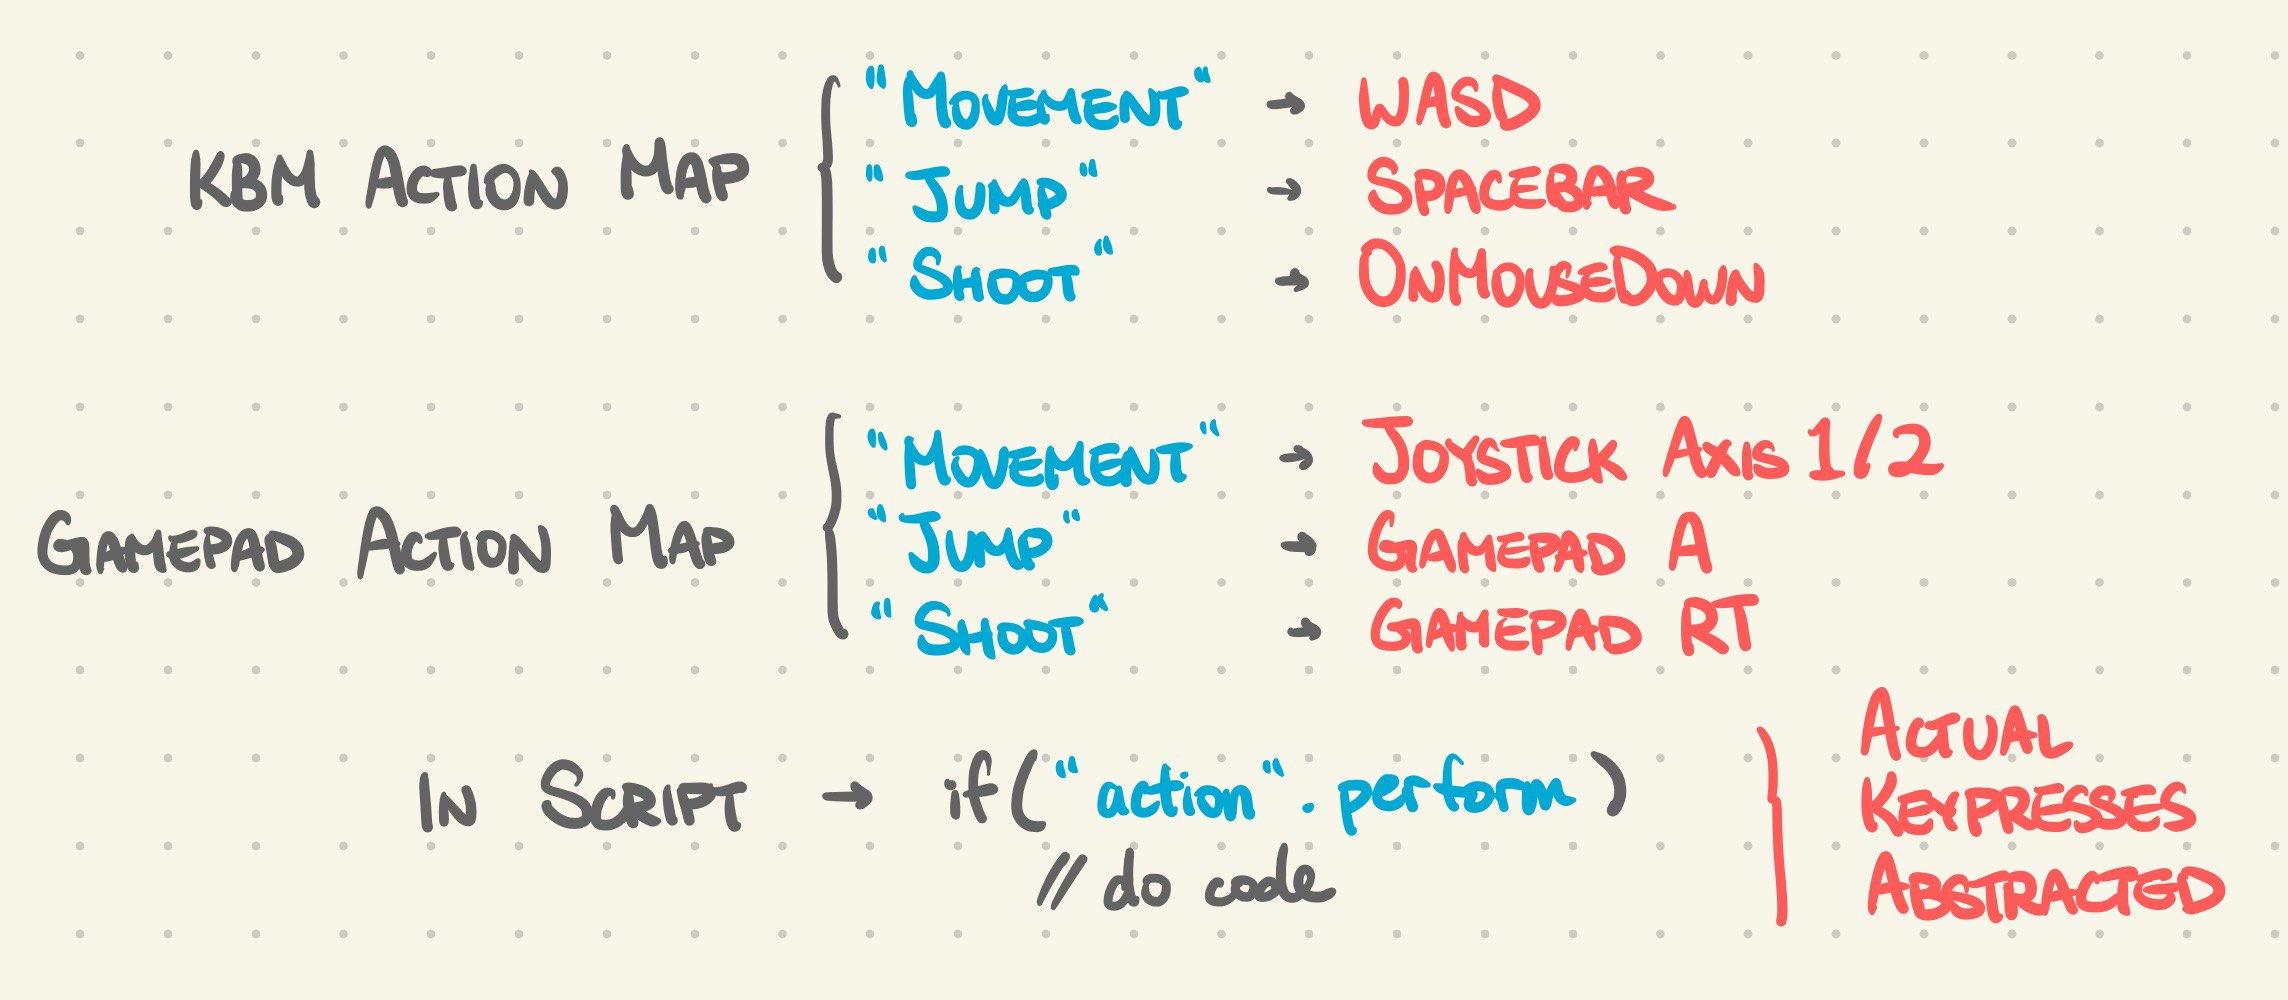 KBM ACTION MAP
"MOVEMENT" → WASD
"JUMP" → SPACEBAR
"SHOOT" → ONMOUSEDOWN
GAMEPAD ACTION MAP
"MOVEMENT" → JOYSTICK AXIS 1/2
"JUMP" → GAMEPAD A
"SHOOT" → GAMEPAD RT
IN SCRIPT → if("action".perform)
// do code
ACTUAL
KEYPRESSES
ABSTRACTED